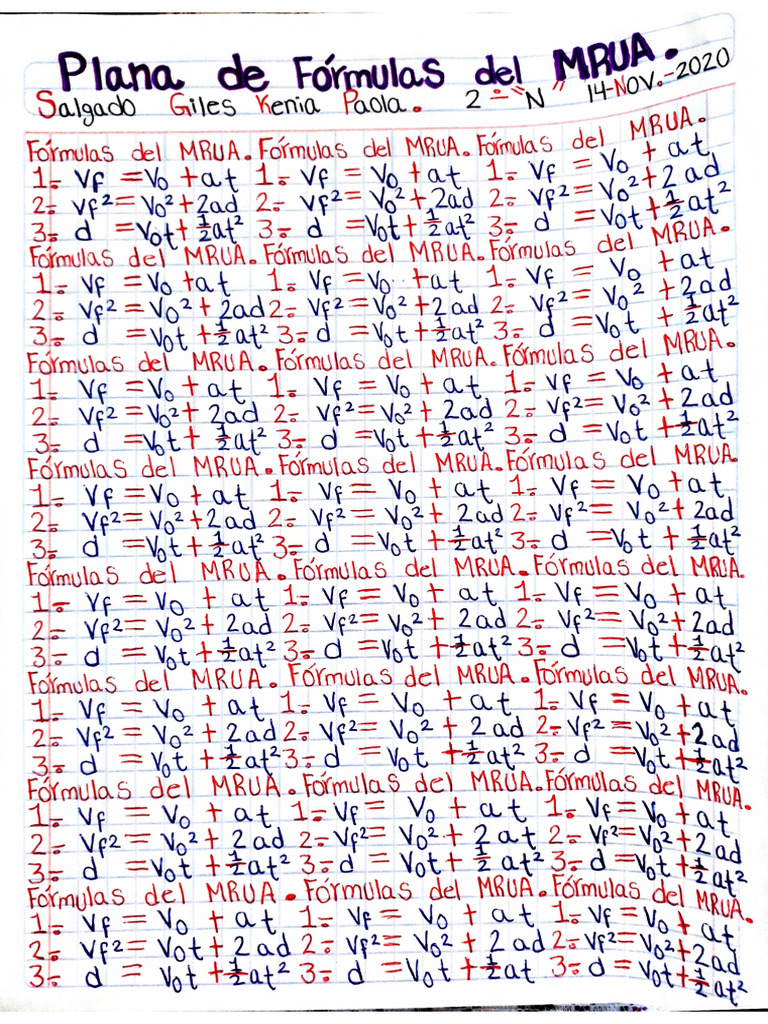 Plana de Fórmulas del MRUA.
Salgado Giles Kenia Paola. 2-"N" 14-NOV.-2020
Fórmulas del MRUA. Fórmulas del MRUA. Fórmulas del MRUA.
1.- Vf = V₀ + at 1.- Vf = V₀ + at 1.- Vf = V₀ + at
2.- Vf² = V₀² + 2ad 2.- Vf² = V₀² + 2ad 2.- Vf² = V₀² + 2 ad
3.- d = V₀t + ½at² 3.- d = V₀t + ½at² 3.- d = V₀t + ½at²
Fórmulas del MRUA. Fórmulas del MRUA. Fórmulas del MRUA.
1.- Vf = V₀ + at 1.- Vf = V₀ + at 1.- Vf = V₀ + at
2.- Vf² = V₀² + 2ad 2.- Vf² = V₀² + 2ad 2.- Vf² = V₀² + 2ad
3.- d = V₀t + ½at² 3.- d = V₀t + ½at² 3.- d = V₀t + ½at²
Fórmulas del MRUA. Fórmulas del MRUA. Fórmulas del MRUA.
1.- Vf = V₀ + at 1.- Vf = V₀ + at 1.- Vf = V₀ + at
2.- Vf² = V₀² + 2ad 2.- Vf² = V₀² + 2ad 2.- Vf² = V₀² + 2ad
3.- d = V₀t + ½at² 3.- d = V₀t + ½at² 3.- d = V₀t + ½at²
Fórmulas del MRUA. Fórmulas del MRUA. Fórmulas del MRUA.
1.- Vf = V₀ + at 1.- Vf = V₀ + at 1.- Vf = V₀ + at
2.- Vf² = V₀² + 2ad 2.- Vf² = V₀² + 2ad 2.- Vf² = V₀² + 2ad
3.- d = V₀t + ½at² 3.- d = V₀t + ½at² 3.- d = V₀t + ½at²
Fórmulas del MRUA. Fórmulas del MRUA. Fórmulas del MRUA.
1.- Vf = V₀ + at 1.- Vf = V₀ + at 1.- Vf = V₀ + at
2.- Vf² = V₀² + 2ad 2.- Vf² = V₀² + 2ad 2.- Vf² = V₀² + 2ad
3.- d = V₀t + ½at² 3.- d = V₀t + ½at² 3.- d = V₀t + ½at²
Fórmulas del MRUA. Fórmulas del MRUA. Fórmulas del MRUA.
1.- Vf = V₀ + at 1.- Vf = V₀ + at 1.- Vf = V₀ + at
2.- Vf² = V₀² + 2ad 2.- Vf² = V₀² + 2ad 2.- Vf² = V₀² + 2ad
3.- d = V₀t + ½at² 3.- d = V₀t + ½at² 3.- d = V₀t + ½at²
Fórmulas del MRUA. Fórmulas del MRUA. Fórmulas del MRUA.
1.- Vf = V₀ + at 1.- Vf = V₀ + at 1.- Vf = V₀ + at
2.- Vf² = V₀² + 2ad 2.- Vf² = V₀² + 2 at 2.- Vf² = V₀² + 2ad
3.- d = V₀t + ½at² 3.- d = V₀t + ½ at² 3.- d = V₀t + ½at²
Fórmulas del MRUA. Fórmulas del MRUA. Fórmulas del MRUA.
1.- Vf = V₀ + at 1.- Vf = V₀ + at 1.- Vf = V₀ + at
2.- Vf² = V₀t + 2ad 2.- Vf² = V₀² + 2 ad 2.- Vf² = V₀² + 2ad
3.- d = V₀t + ½at² 3.- d = V₀t + ½at 3.- d = V₀t + ½at²